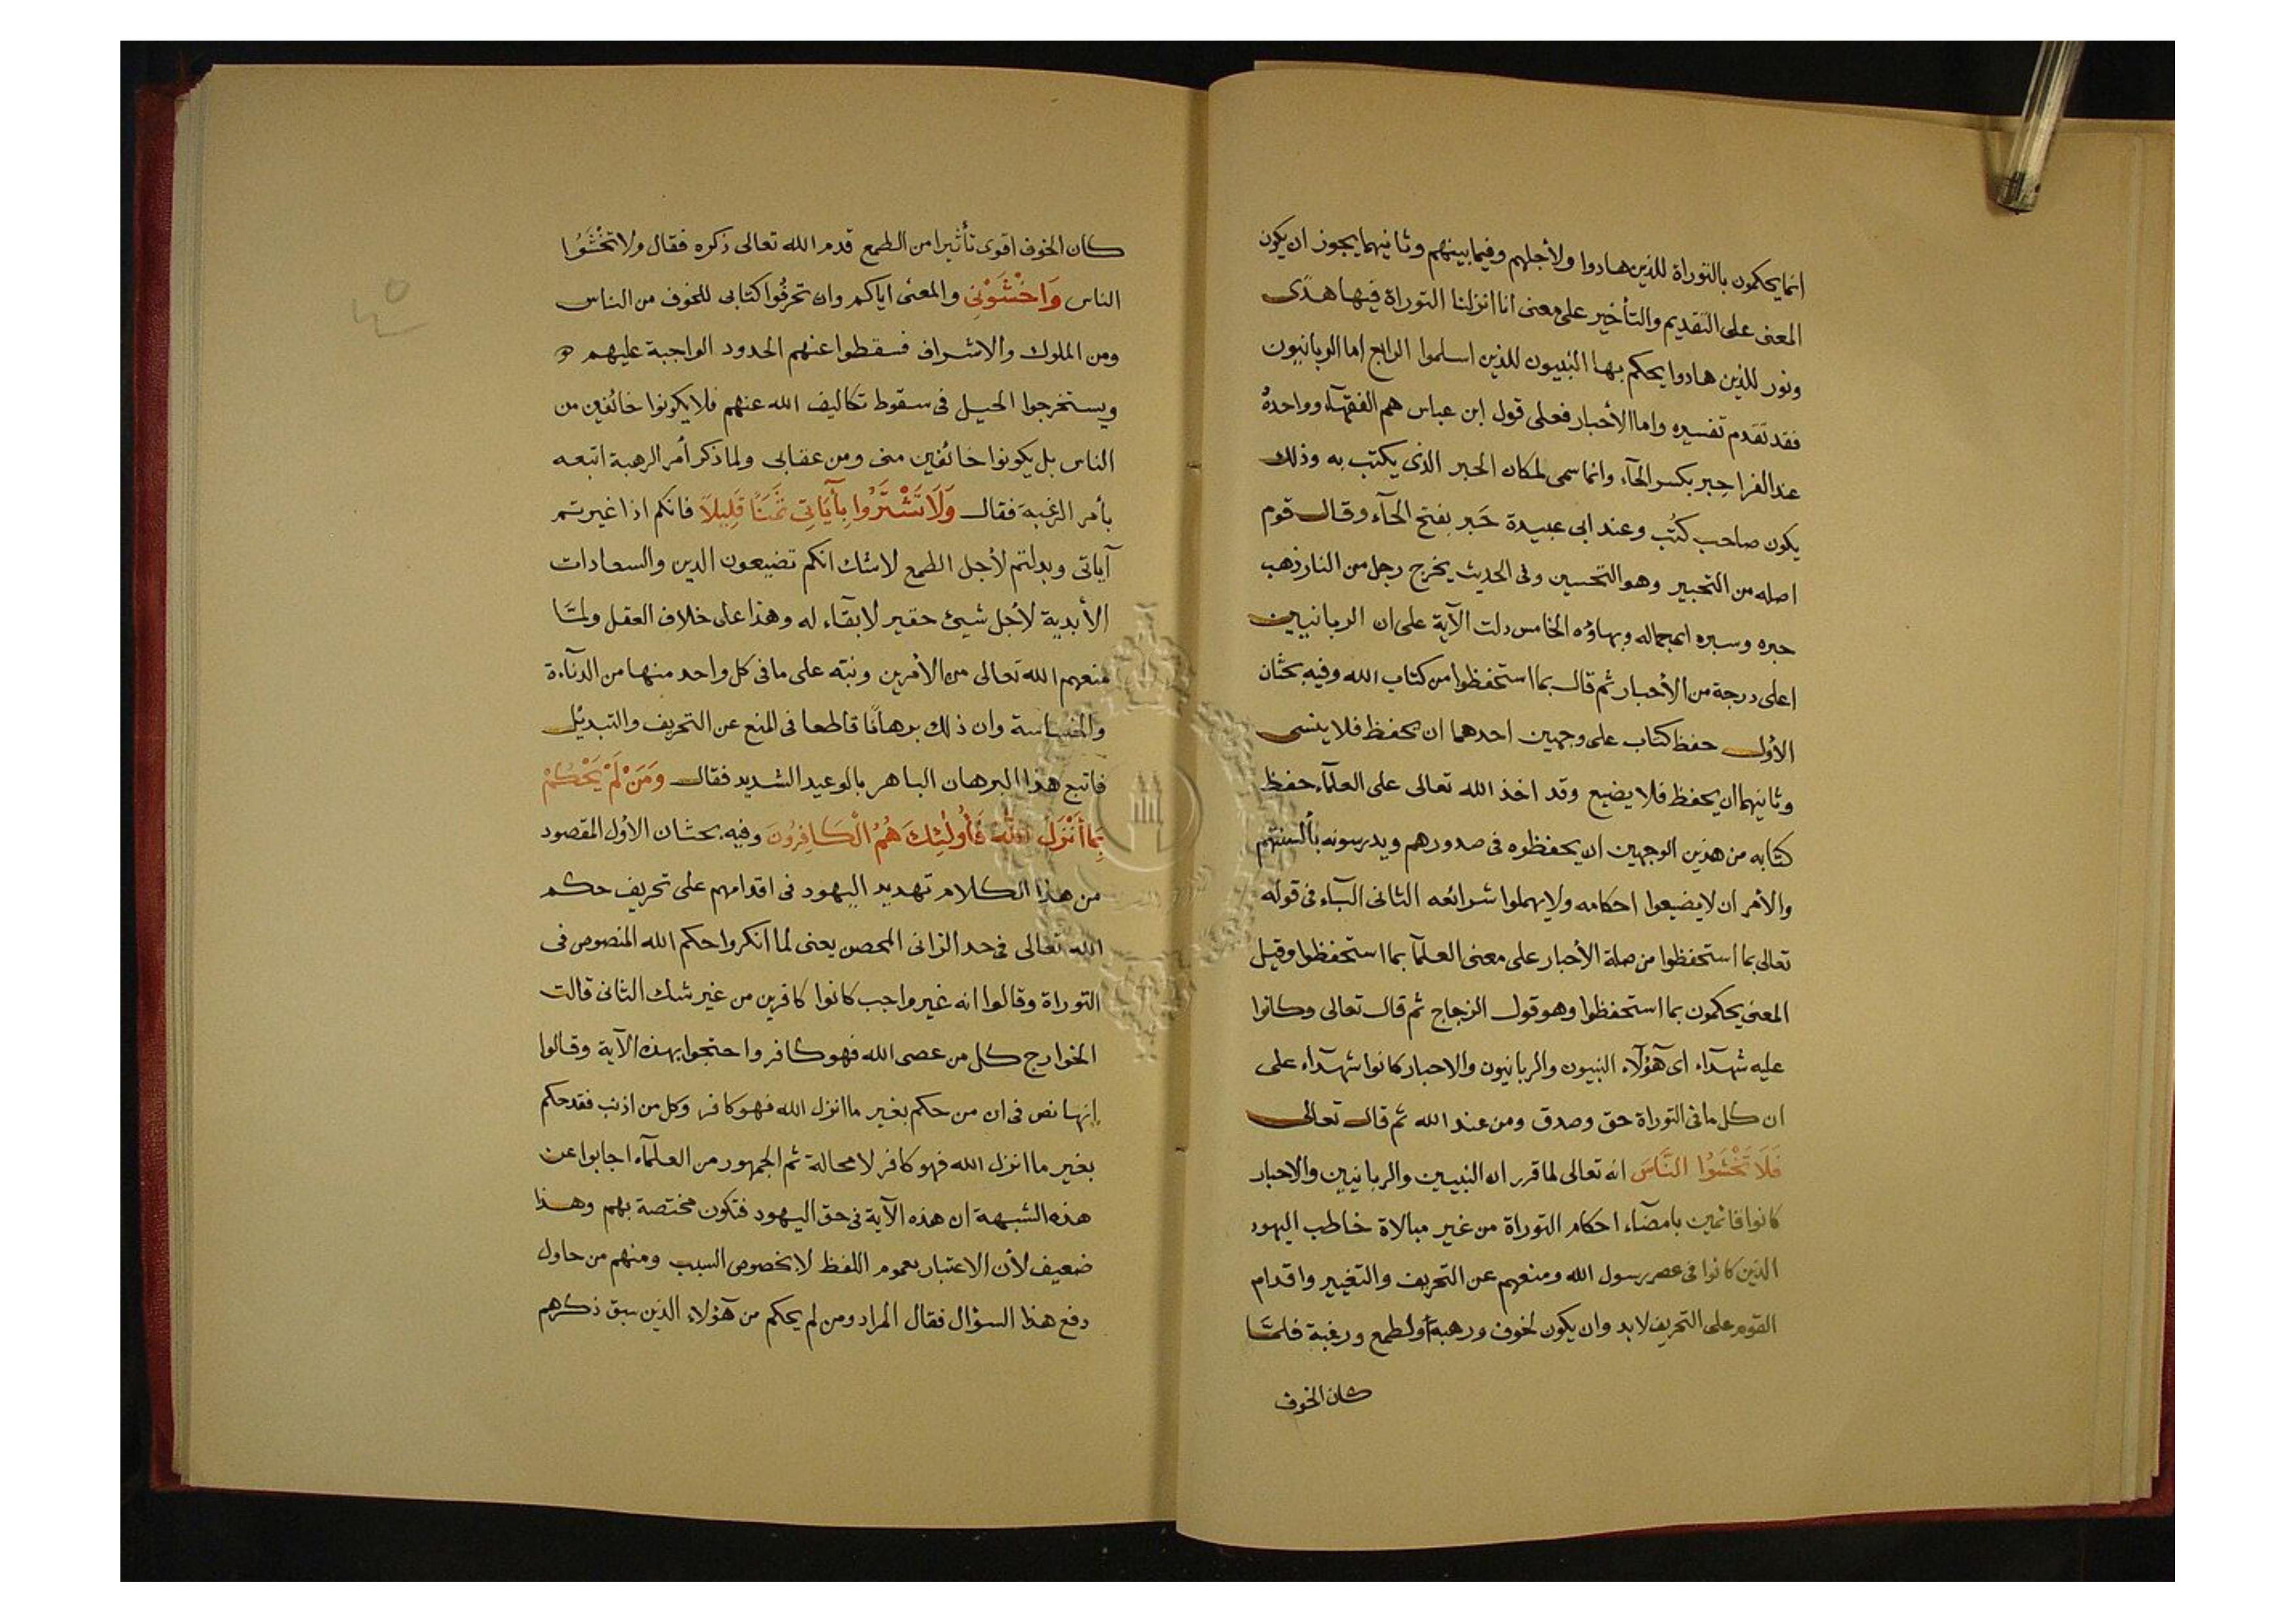 انما يحكمون بالتوراة للذين هادوا ولأجلهم وفيما بينهم وثانيهما يجوز ان يكون
المعنى على التقديم والتأخير على معنى انا انزلنا التوراة فيها هدًى
ونور للذين هادوا يحكم بها النبيون للذين اسلموا الرابع اما الربانيون
فقد تقدم تفسيره واما الأحبار فعلى قول ابن عباس هم الفقهآء وواحدهُ
عند الفرا حِبر بكسر الحآء وانما سمى لمكان الحبر الذى يكتب به وذلك
يكون صاحب كتُب وعند ابى عبيدة حَبر بفتح الحآء وقال قوم
اصله من التحبير وهو التحسين وفى الحديث يخرج رجل من النار ذهب
حبره وسبره اى جماله وبهاؤه الخامس دلت الآية على ان الربانيين
اعلى درجة من الأحبار ثم قال بما استحفظوا من كتاب الله وفيه بحثان
الأول حفظ كتاب على وجهين احدهما ان يحفظ فلا ينسى
وثانيهما ان يحفظ فلا يضيع وقد اخذ الله تعالى على العلمآء حفظ
كتابه من هذين الوجهين ان يحفظوه فى صدورهم ويدرسونه بألسنتهم
والأمر ان لا يضيعوا احكامه ولا يهملوا شرائعه الثانى البآء فى قوله
تعالى بما استحفظوا من صلة الأحبار على معنى العلمآ بما استحفظوا وقيل
المعنى يحكمون بما استحفظوا وهو قول الزجاج ثم قال تعالى وكانوا
عليه شهدآء اى هؤلآء النبيون والربانيون والاحبار كانوا شهدآء على
ان كل ما فى التوراة حق وصدق ومن عند الله ثم قال تعالى
فَلَا تَخْشَوُا النَّاسَ انه تعالى لما قرر ان النبيين والربانيين والاحبار
كانوا قائمين بامضآء احكام التوراة من غير مبالاة خاطب اليهود
الذين كانوا فى عصر رسول الله ومنعهم عن التحريف والتغيير واقدام
القوم على التحريف لا بد وان يكون لخوف ورهبة أو لطمع ورغبة فلمّا
كان الخوف
كان الخوف اقوى تأثيرا من الطمع قدم الله تعالى ذكره فقال ولا تخْشَوُا
الناس وَاخْشَوْنِي والمعنى اياكم وان تحرفُوا كتابى للخوف من الناس
ومن الملوك والاشراف فسقطوا عنهم الحدود الواجبة عليهم و
ويستخرجوا الحيل فى سقوط تكاليف الله عنهم فلا يكونوا خائفين من
الناس بل يكونوا خائفين منى ومن عقابى ولما ذكر أمر الرهبة اتبعه
بأمر الرغبة فقال وَلَا تَشْتَرُوا بِآيَاتِي ثَمَنًا قَلِيلًا فانكم اذا غيرتم
آياتى وبدلتم لأجل الطمع لاشك انكم تضيعون الدين والسعادات
الأبدية لأجل شيئ حقير لا بقآء له وهذا على خلاف العقل ولمّا
منعهم الله تعالى من الأمرين ونبّه على ما فى كل واحد منها من الدنآءة
والخساسة وان ذلك برهانًا قاطعا فى المنع عن التحريف والتبديل
فاتبع هذا البرهان الباهر بالوعيد الشديد فقال وَمَنْ لَمْ يَحْكُمْ
بِمَا أَنْزَلَ اللهُ فَأُولٰئِكَ هُمُ الْكَافِرُونَ وفيه بحثان الأول المقصود
من هذا الكلام تهديد اليهود فى اقدامهم على تحريف حكم
الله تعالى فى حد الزانى المحصن يعنى لما انكروا حكم الله المنصوص فى
التوراة وقالوا انه غير واجب كانوا كافرين من غير شك الثانى قالت
الخوارج كل من عصى الله فهو كافر واحتجوا بهذه الآية وقالوا
إنها نص فى ان من حكم بغير ما انزل الله فهو كافر وكل من اذنب فقد حكم
بغير ما انزل الله فهو كافر لا محالة ثم الجمهور من العلمآء اجابوا عن
هذه الشبهة ان هذه الآية فى حق اليهود فتكون مختصة بهم وهذا
ضعيف لأن الاعتبار بعموم اللفظ لا بخصوص السبب ومنهم من حاول
دفع هذا السؤال فقال المراد ومن لم يحكم من هؤلاء الذين سبق ذكرهم